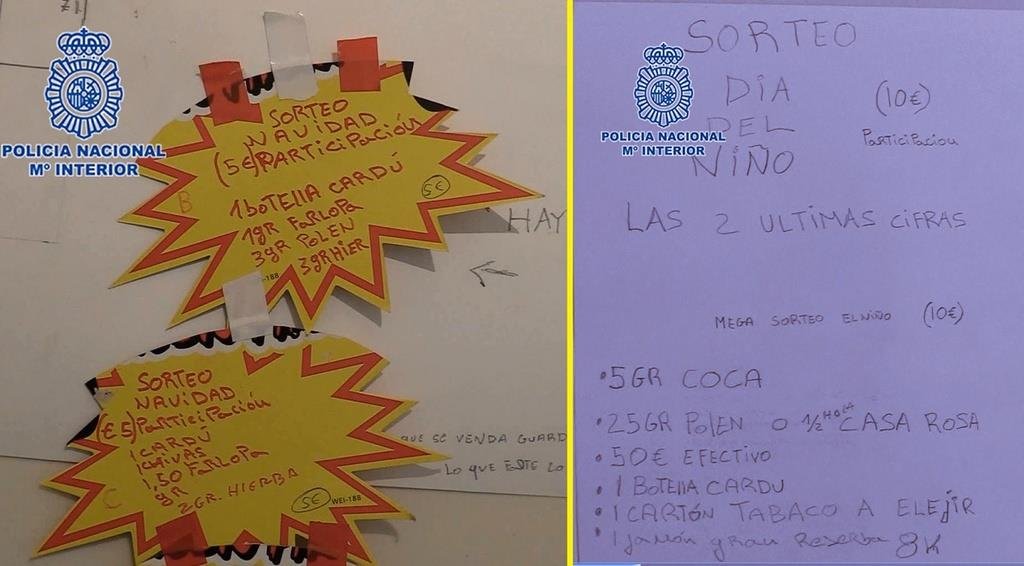 £1
POLICIA NACIONAL
Mº INTERIOR
SORTEO
NAVIDAD
(5€) PARTICIPACIÓN
B
1 BOTELLA CARDÚ
5€
1gR FARLOPA
3gR POLEN
3gRHIER
-188
HAY
SORTEO
NAVIDAD
(€5) PARTICIPACIÓN
1 CARDÚ
1 CHIVAS
1,50 FARLOPA
gR
2 GR. HIERBA
C
5€
WEI-188
QUE SE VENDA GUARD
LO QUE ESTE LO
POLICIA NACIONAL
Mº INTERIOR
SORTEO
DIA
DEL
NIÑO
(10€)
PARTICIPACION
LAS 2 ULTIMAS CIFRAS
MEGA SORTEO EL NIÑO (10€)
• 5GR COCA
• 25GR POLEN O 1/2 CASA ROSA
• 50€ EFECTIVO
• 1 BOTELLA CARDU
• 1 CARTÓN TABACO A ELEJIR
• 1 JAMÓN gran Reserva 8K